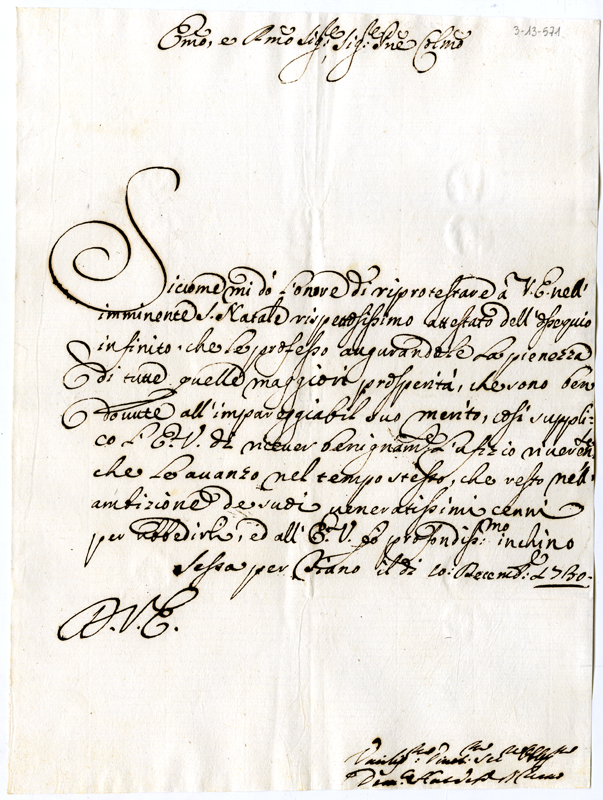 3-13-571
Emo, e Rmo Sig:re, Sig:re Pne Colmo
Siccome mi dò l'onore di riprotestare à V. E. nell'
imminente S. Natale rispettosissimo attestato dell'ossequio
infinito che le professo augurandole la pienezza
di tutte quelle maggiori prosperità, che sono ben
dovute all'impareggiabil suo merito, così suppli-
co l'E. V. di ricever benignam:te l'ufizio riveren:te
che le avanzo nel tempo stesso, che resto nell'
ambizione de suoi veneratissimi cenni
per ubbedirla, ed all'E. V. fo profondiss:mo inchino
Sessa per Ciano il dì 10: Decemb:e 1730.
D. V. E.